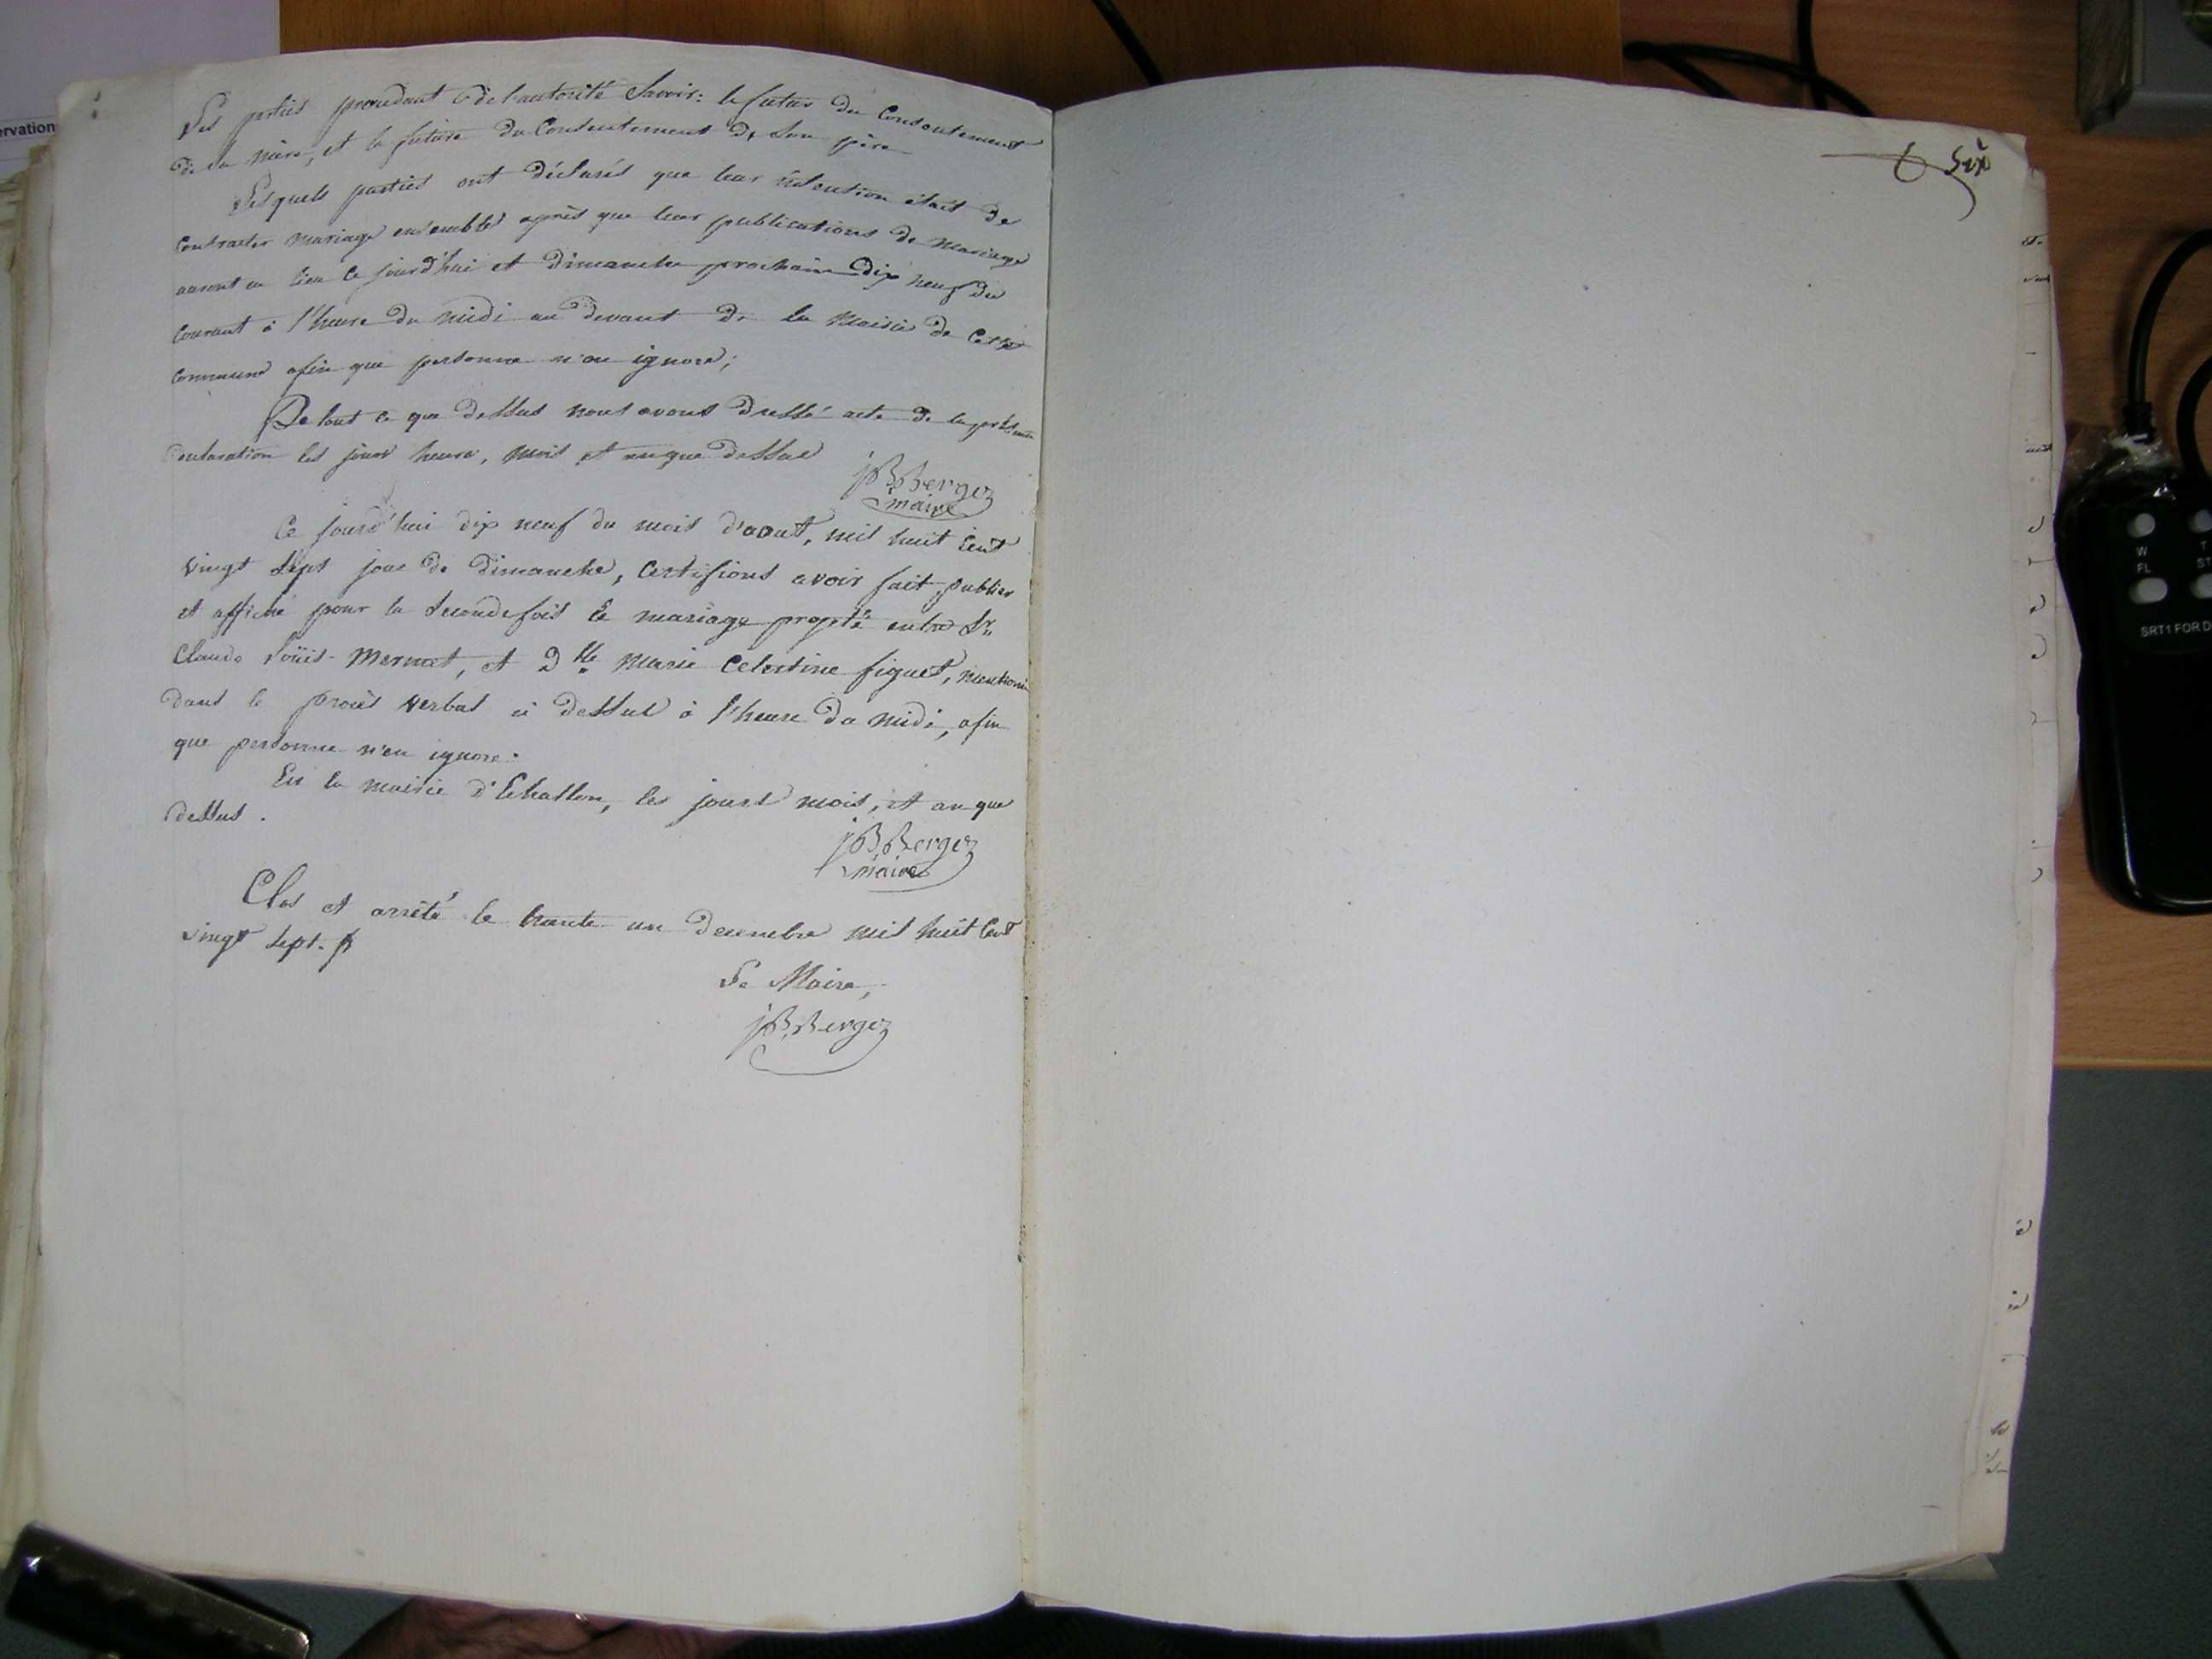 Les parties procedant de l'autorité Savoir: le futur du Consentement
de sa mère, et la future du Consentement de Son père
Lesquels parties ont déclarés que leur intention était de
Contracter mariage ensemble après que leur publications de mariage
auront eu lieu ce jourd'hui et Dimanche prochain Dix neuf du
Courant à l'heure du midi au devant de la Mairie de Cette
Commune afin que personne n'en ignore;
De tout ce que dessus nous avons dressé acte de la présente
les jour heure, mois et an que dessus
jB Bergez
maire
Ce jourd'hui dix neuf du mois d'aout, mil huit Cent
vingt Sept jour de Dimanche, Certifions avoir fait publier
et affiché pour la Seconde fois le mariage projeté entre Sr.
Claude Loüis Mermet, et Dlle Marie Celestine figuet, mentionné
dans le procès verbal ci dessus à l'heure du midi, afin
que personne n'en ignore.
En la mairie d'Echallon, les jours mois, et an que
dessus.
jB Bergez
maire
Clos et arrêté le trente un decembre mil huit Cent
vingt Sept.
Le Maire,
jB Bergez
6 Six
ervation
W
T
FL
ST
SRT1 FOR D